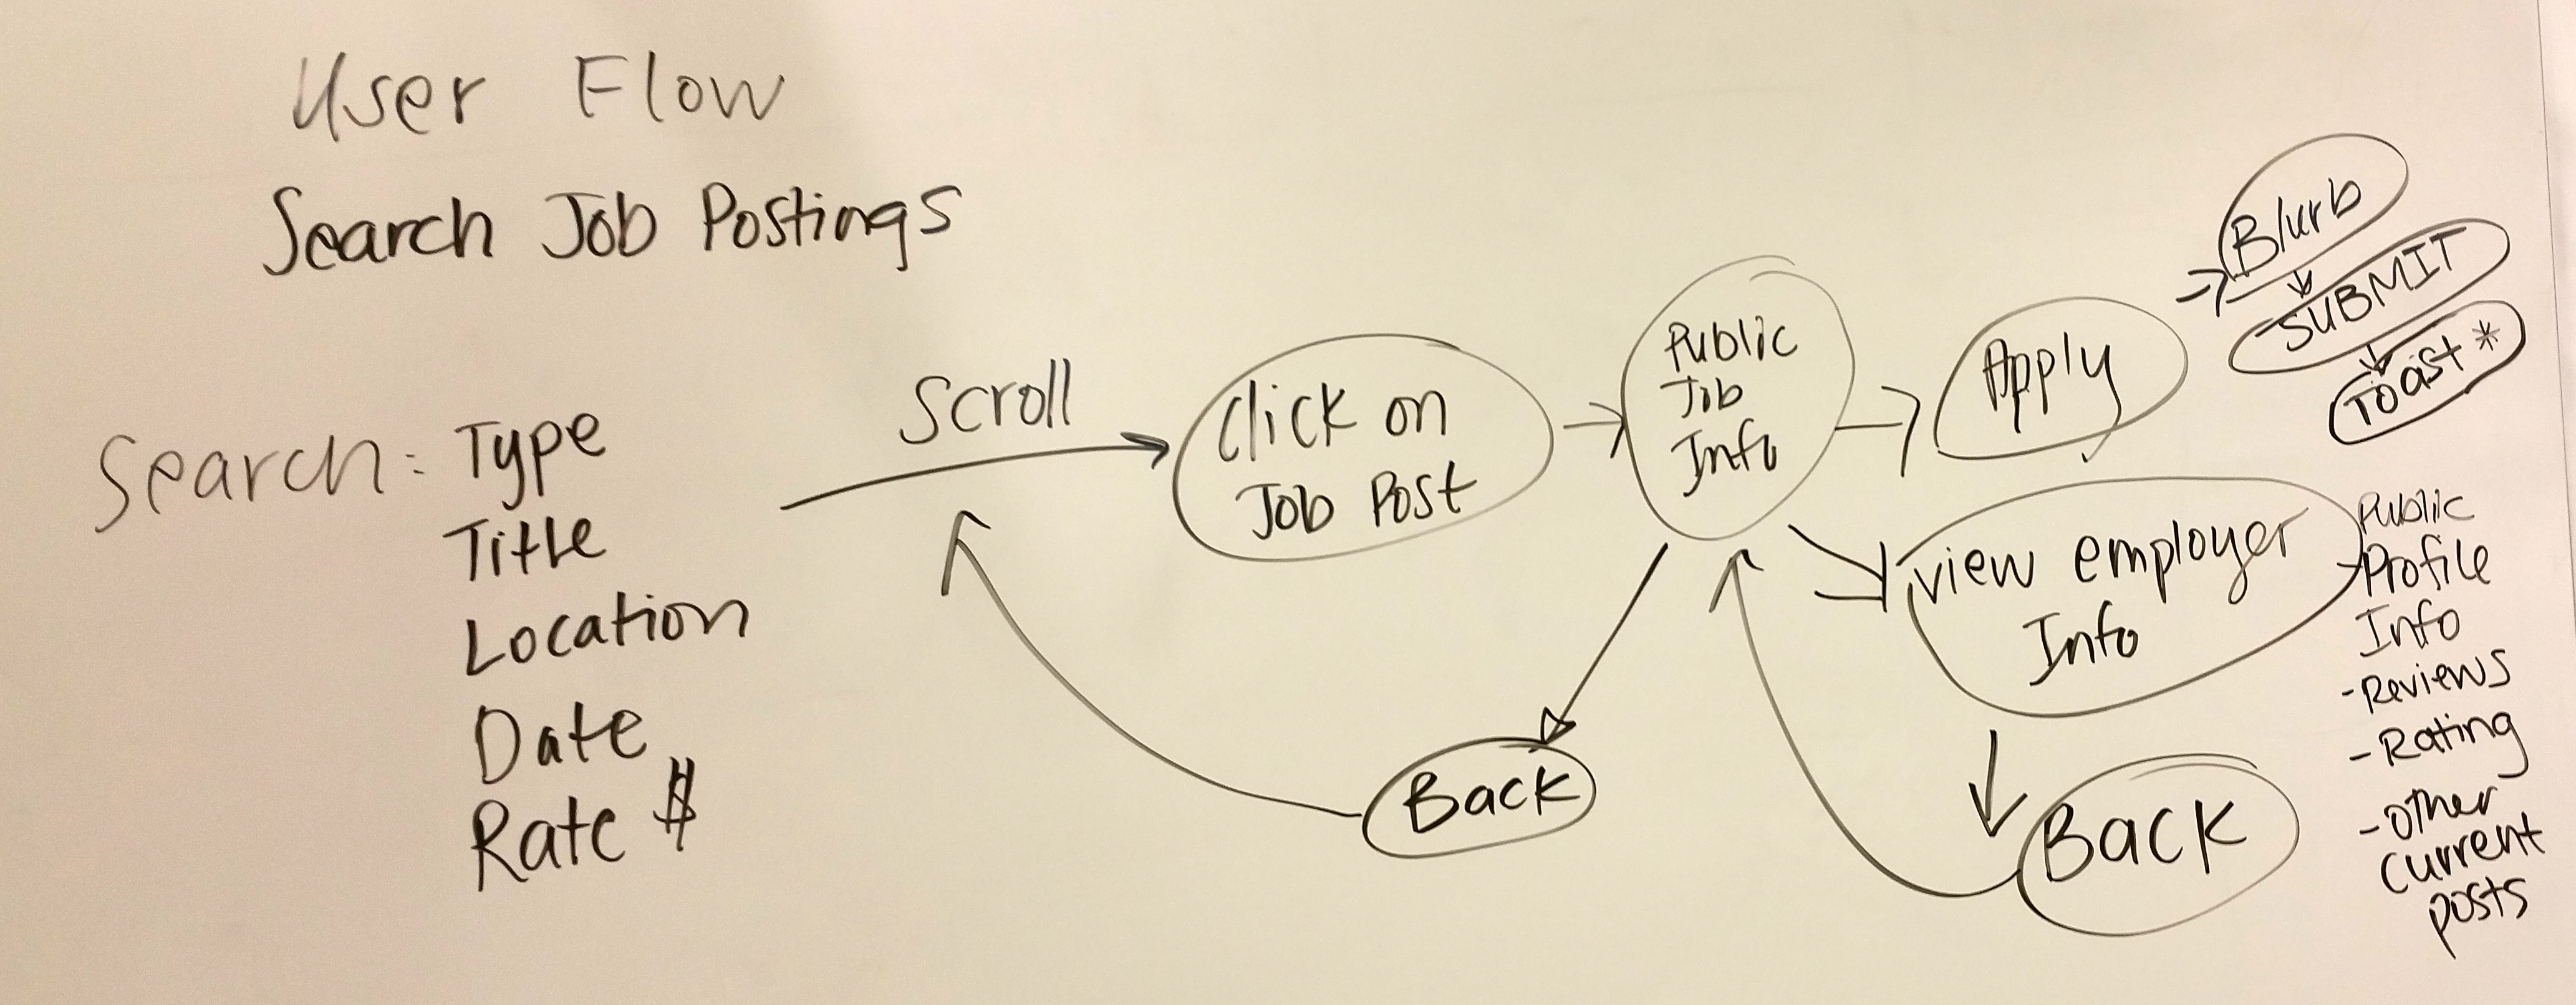 User Flow
Search Job Postings
Search: Type
Title
Location
Date
Rate $
Scroll
Click on
Job Post
Public
Job
Info
Apply
Blurb
SUBMIT
Toast *
view employer
Info
Public
Profile
Info
- Reviews
- Rating
- other
current
posts
Back
Back